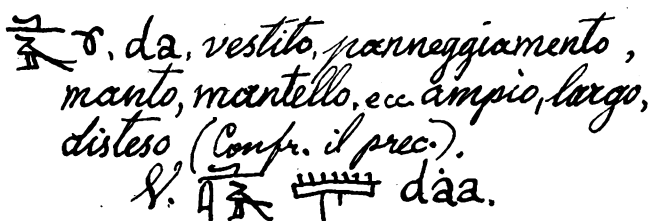 da, vestito, panneggiamento,
manto, mantello, ecc. ampio, largo,
disteso (Confr. il prec.).
V. dȧa.